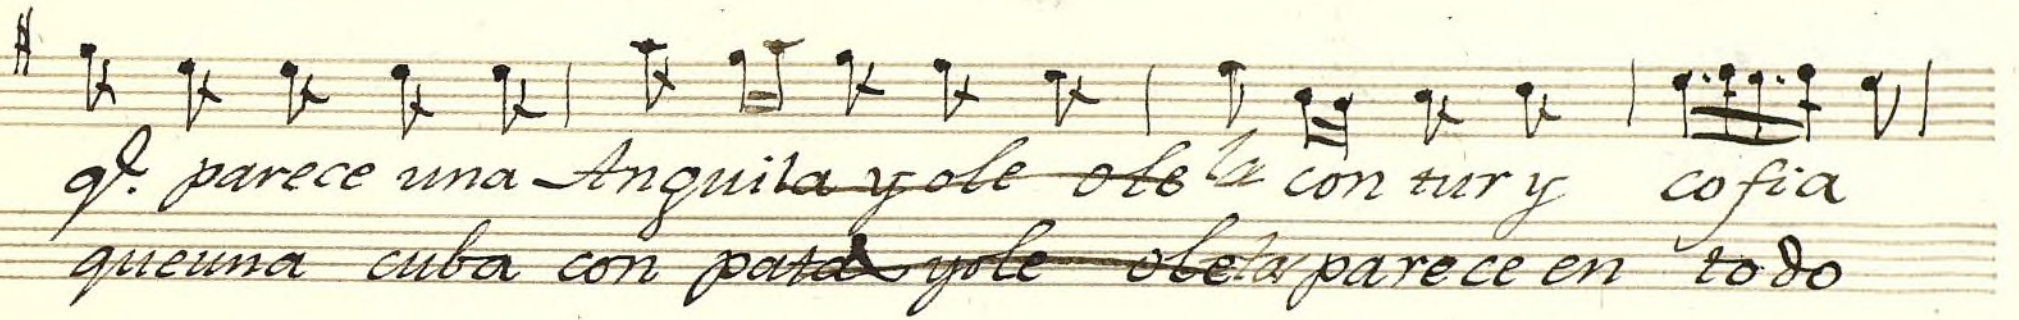 qᵉ. parece una Anguila y ole ole la con tur y cofia
que una cuba con pata y ole ole la parece en todo